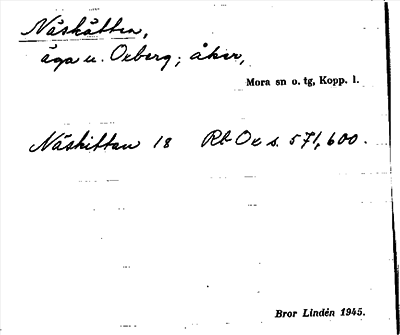 Näskåttan,
äga u. Oxberg; åker,
Mora sn o. tg, Kopp. l.
Näskittan 18 Rb Ox s. 571, 600.
Bror Lindén 1945.